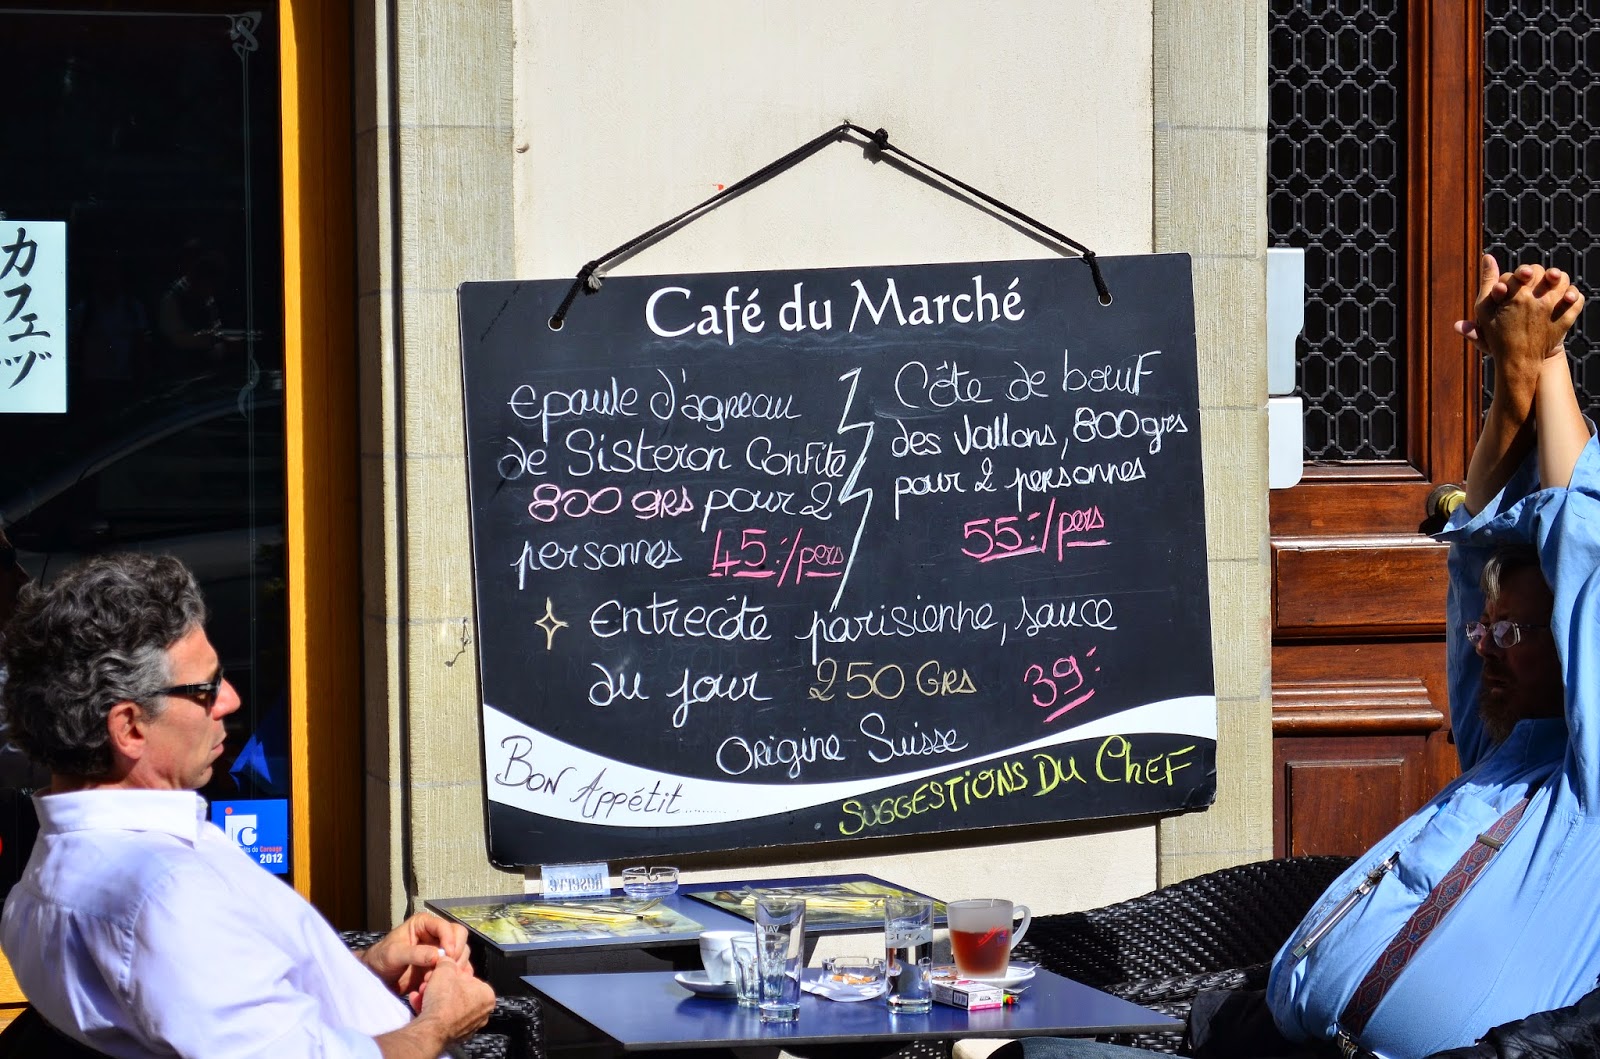 カフェッ
Café du Marché
Epaule d'agneau
de Sisteron Confite
800 grs pour 2
personnes 45.-/pers
Côte de bœuf
des Vallons, 800grs
pour 2 personnes
55.-/pers
Entrecôte parisienne, sauce
du jour 250 Grs 39.-
Origine Suisse
Bon Appétit..........
Suggestions Du Chef
Réservé
G
de Carouge
2012